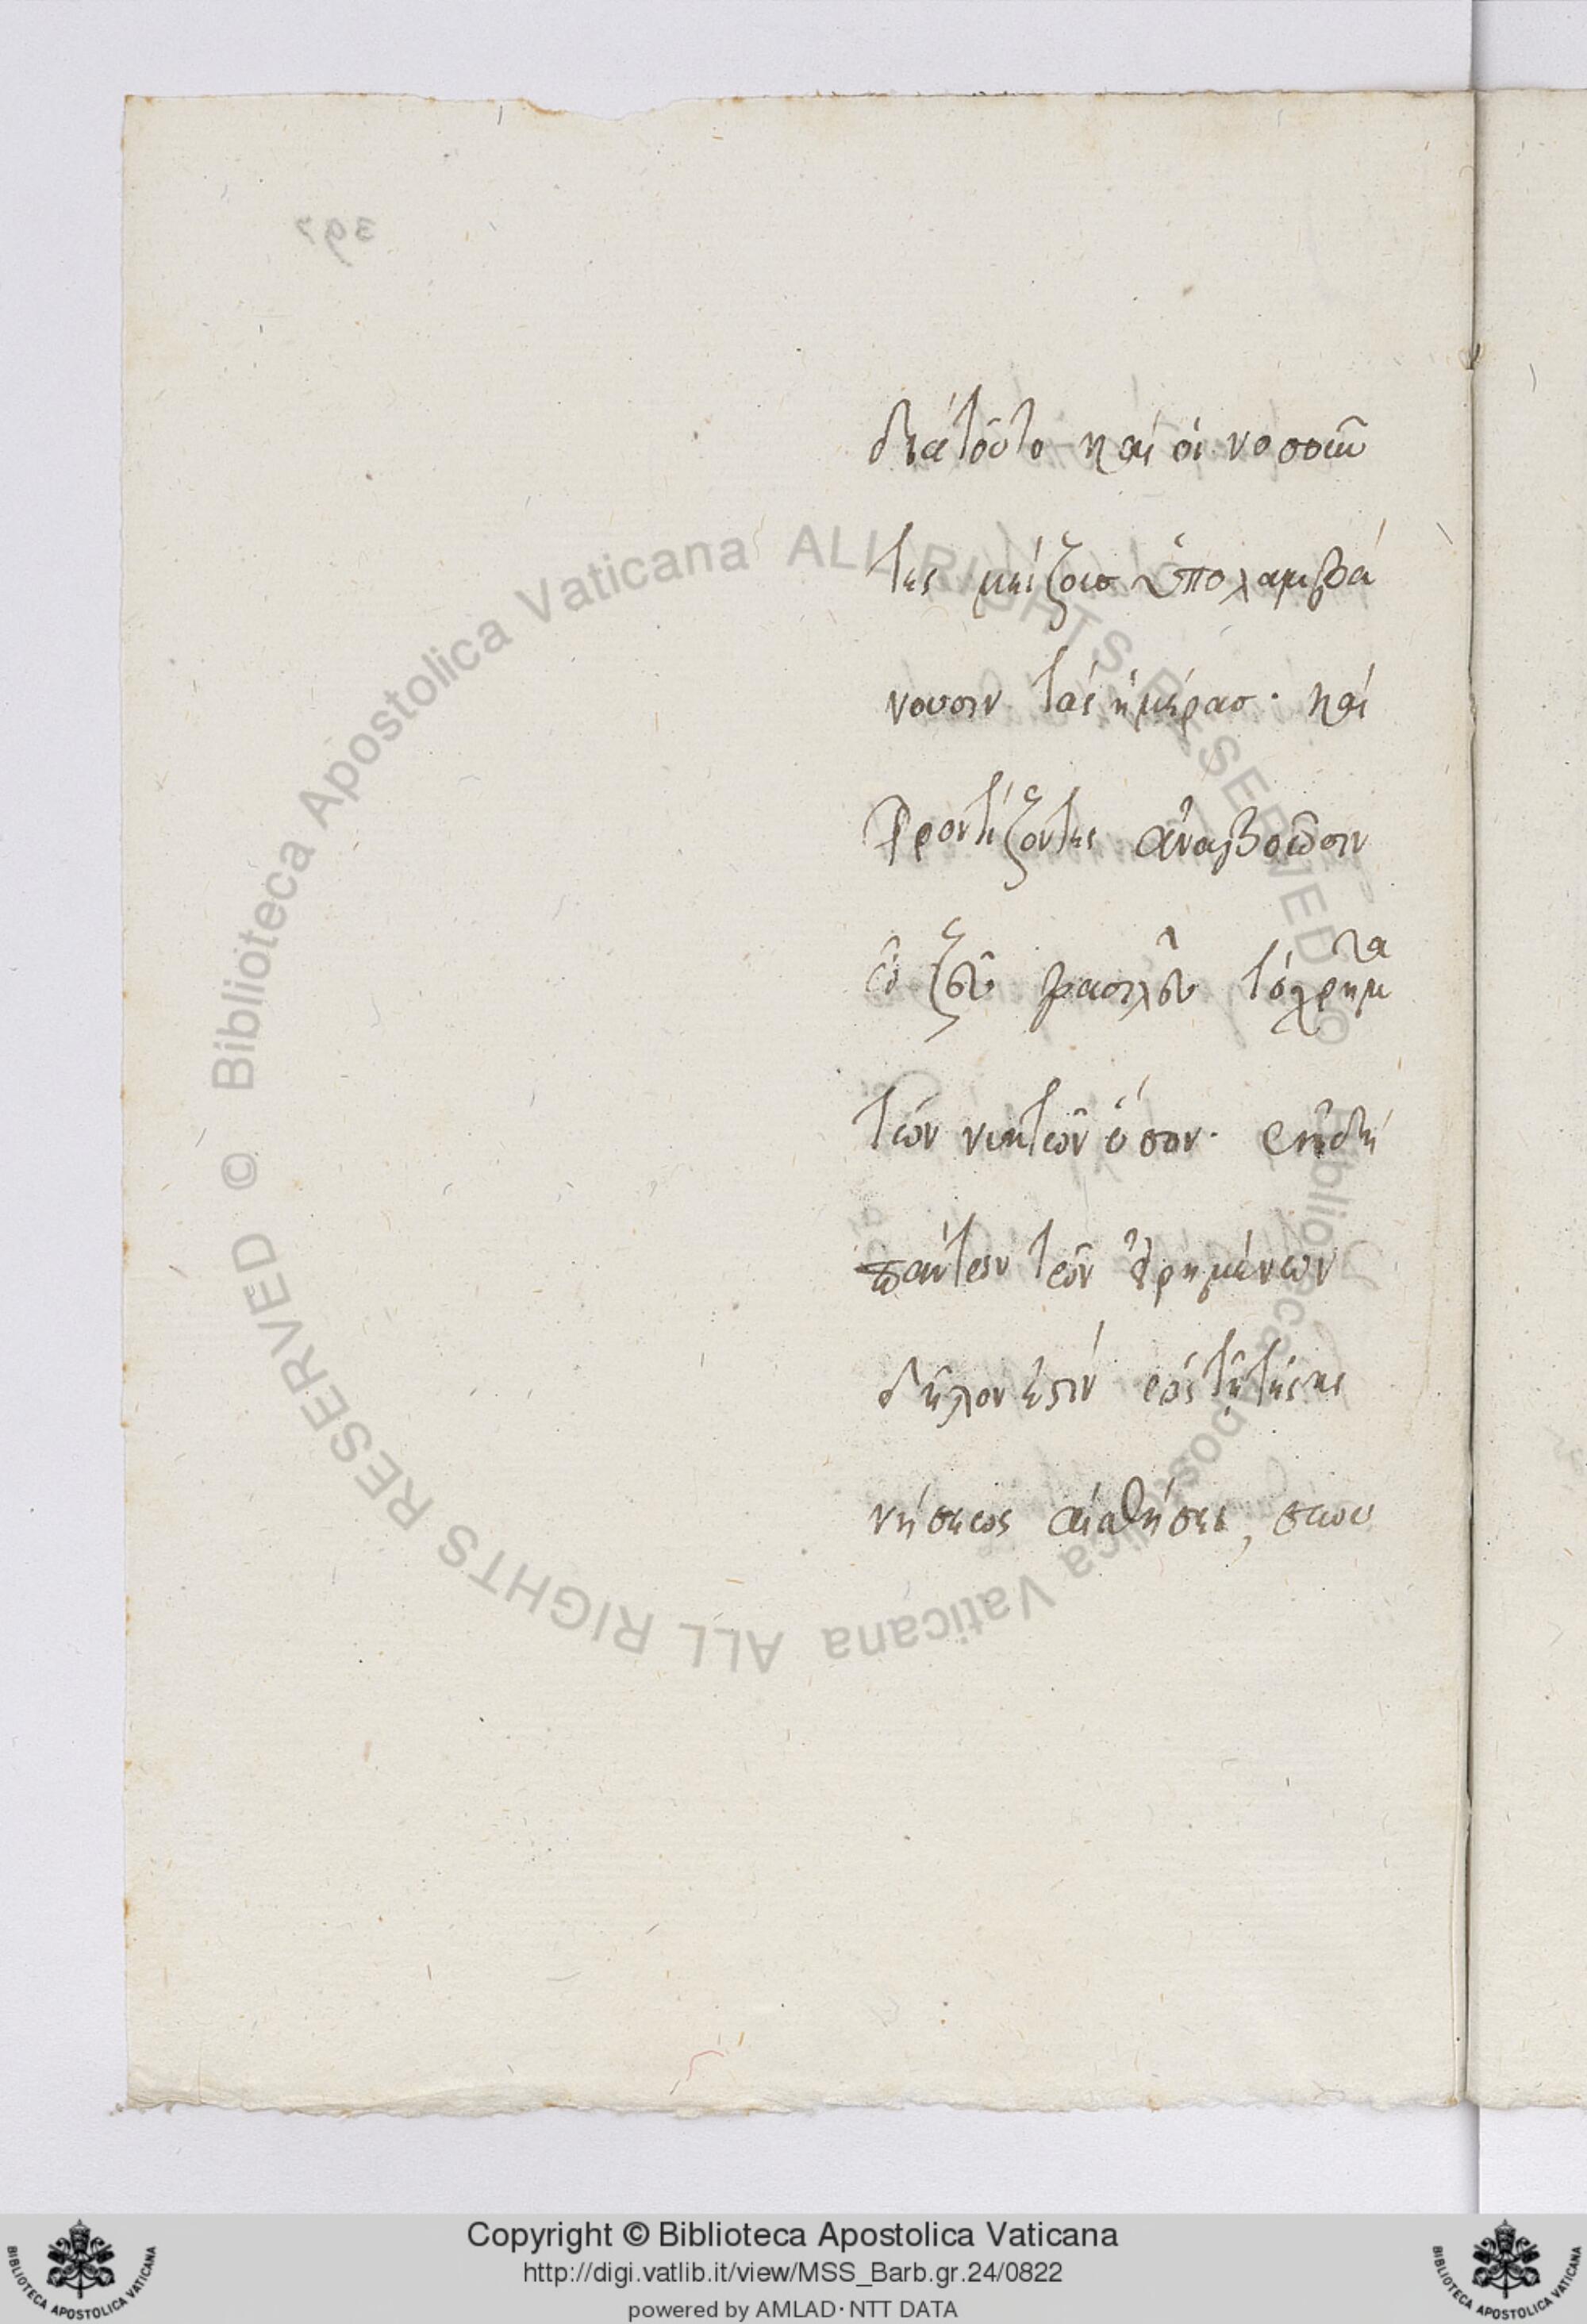 διὰ τοῦτο καὶ οἱ νοσοῦν
τες μείζους ὑπολαμβά
νουσιν τὰς ἡμέρας· καὶ
φροντίζοντες ἀναβοῶσιν
ὦ ζεῦ βασιλεῦ τὸ χρῆμα
τῶν νυκτῶν ὅσον· ἐκ δὴ
πάντων τῶν εἰρημένων
δῆλον ἐστὶν ὡς τῇ τῆς κι
νήσεως αἰσθήσει,
Copyright © Biblioteca Apostolica Vaticana
http://digi.vatlib.it/view/MSS_Barb.gr.24/0822
powered by AMLAD · NTT DATA
© Biblioteca Apostolica Vaticana ALL RIGHTS RESERVED
© Biblioteca Apostolica Vaticana ALL RIGHTS RESERVED
BIBLIOTECA APOSTOLICA VATICANA
BIBLIOTECA APOSTOLICA VATICANA